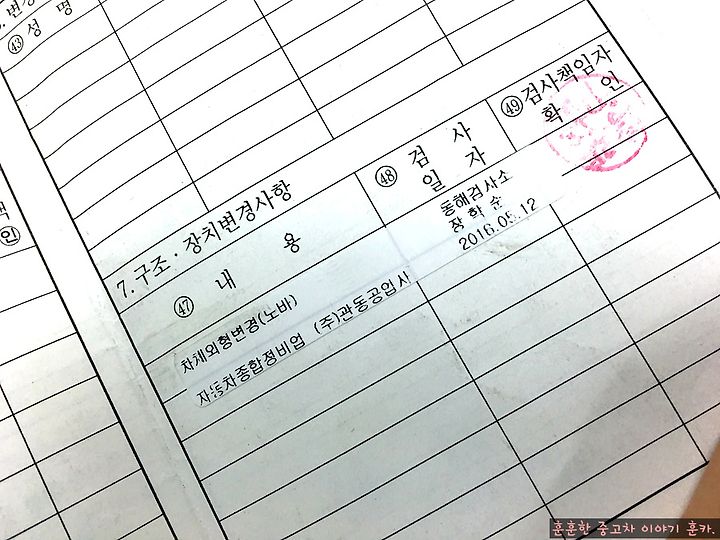 변경
㊸ 성 명
책
인
7. 구조 · 장치변경사항
㊼ 내 용
㊽ 검 사
일 자
㊾ 검사책임자
확 인
차체외형변경(노바)
자동차종합정비업 (주)관동공업사
동해검사소
장학순
2016.05.12
훈훈한 중고차 이야기 훈카.